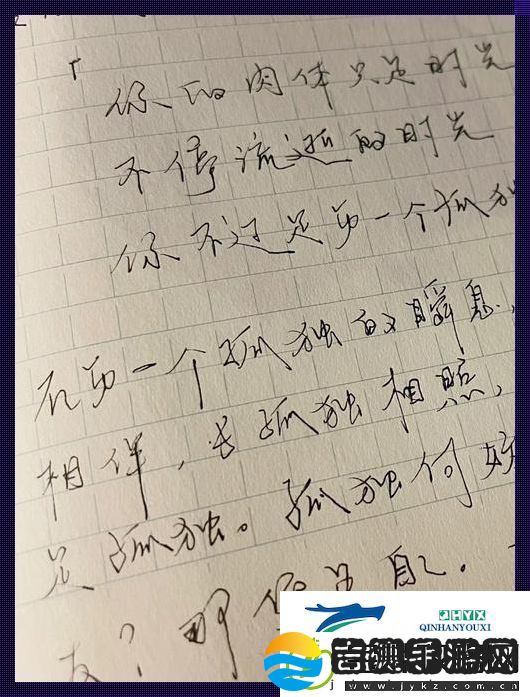 「
你的肉体只是时光
不停流逝的时光
你不过是每一个孤独
在每一个孤独的瞬息,
相伴,与孤独相照,
是孤独。孤独何好
友?那便是自己.
QHYX
QINHANYOUXI
吉奥手游网
www.jykz.com.cn